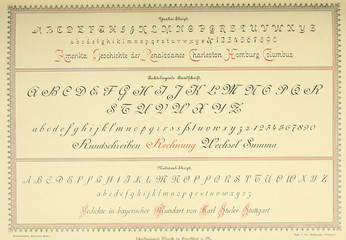 A B C D E F G H I J K L M N O P Q R S T U V W X Y Z
a b c d e f g h i j k l m n o p q r s t u v w x y z & 1 2 3 4 5 6 7 8 9 0
Amerika Geschichte der Renaissance Charleston Homburg Columbus
A B C D E F G H I J K L M N O P Q R
S T U V W X Y Z
a b c d e f g h i j k l m n o p q r s t u v w x y z 1 2 3 4 5 6 7 8 9 0
Rundschreiben Rechnung Wechsel Summa
A B C D E F G H I J K L M N O P Q R S T U V W X Y Z
a b c d e f g h i j k l m n o p q r s t u v w x y z
Gedichte in bayerischer Mundart von Karl Stieler Stuttgart